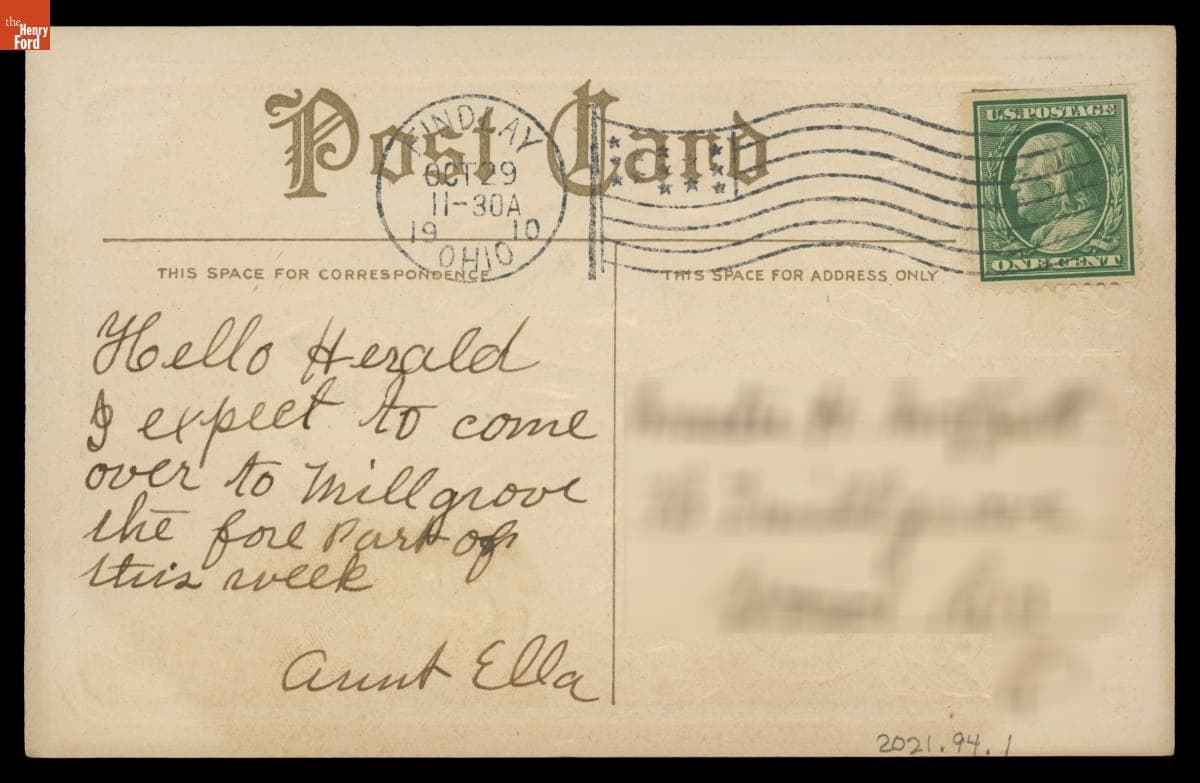 the
Henry
Ford
Post Card
FINDLAY
OCT 29
11-30A
19 10
OHIO
U.S. POSTAGE
ONE CENT
THIS SPACE FOR CORRESPONDENCE
THIS SPACE FOR ADDRESS ONLY
Hello Herald
I expect to come
over to Millgrove
the fore Part of
this week
Aunt Ella
2021.94.1